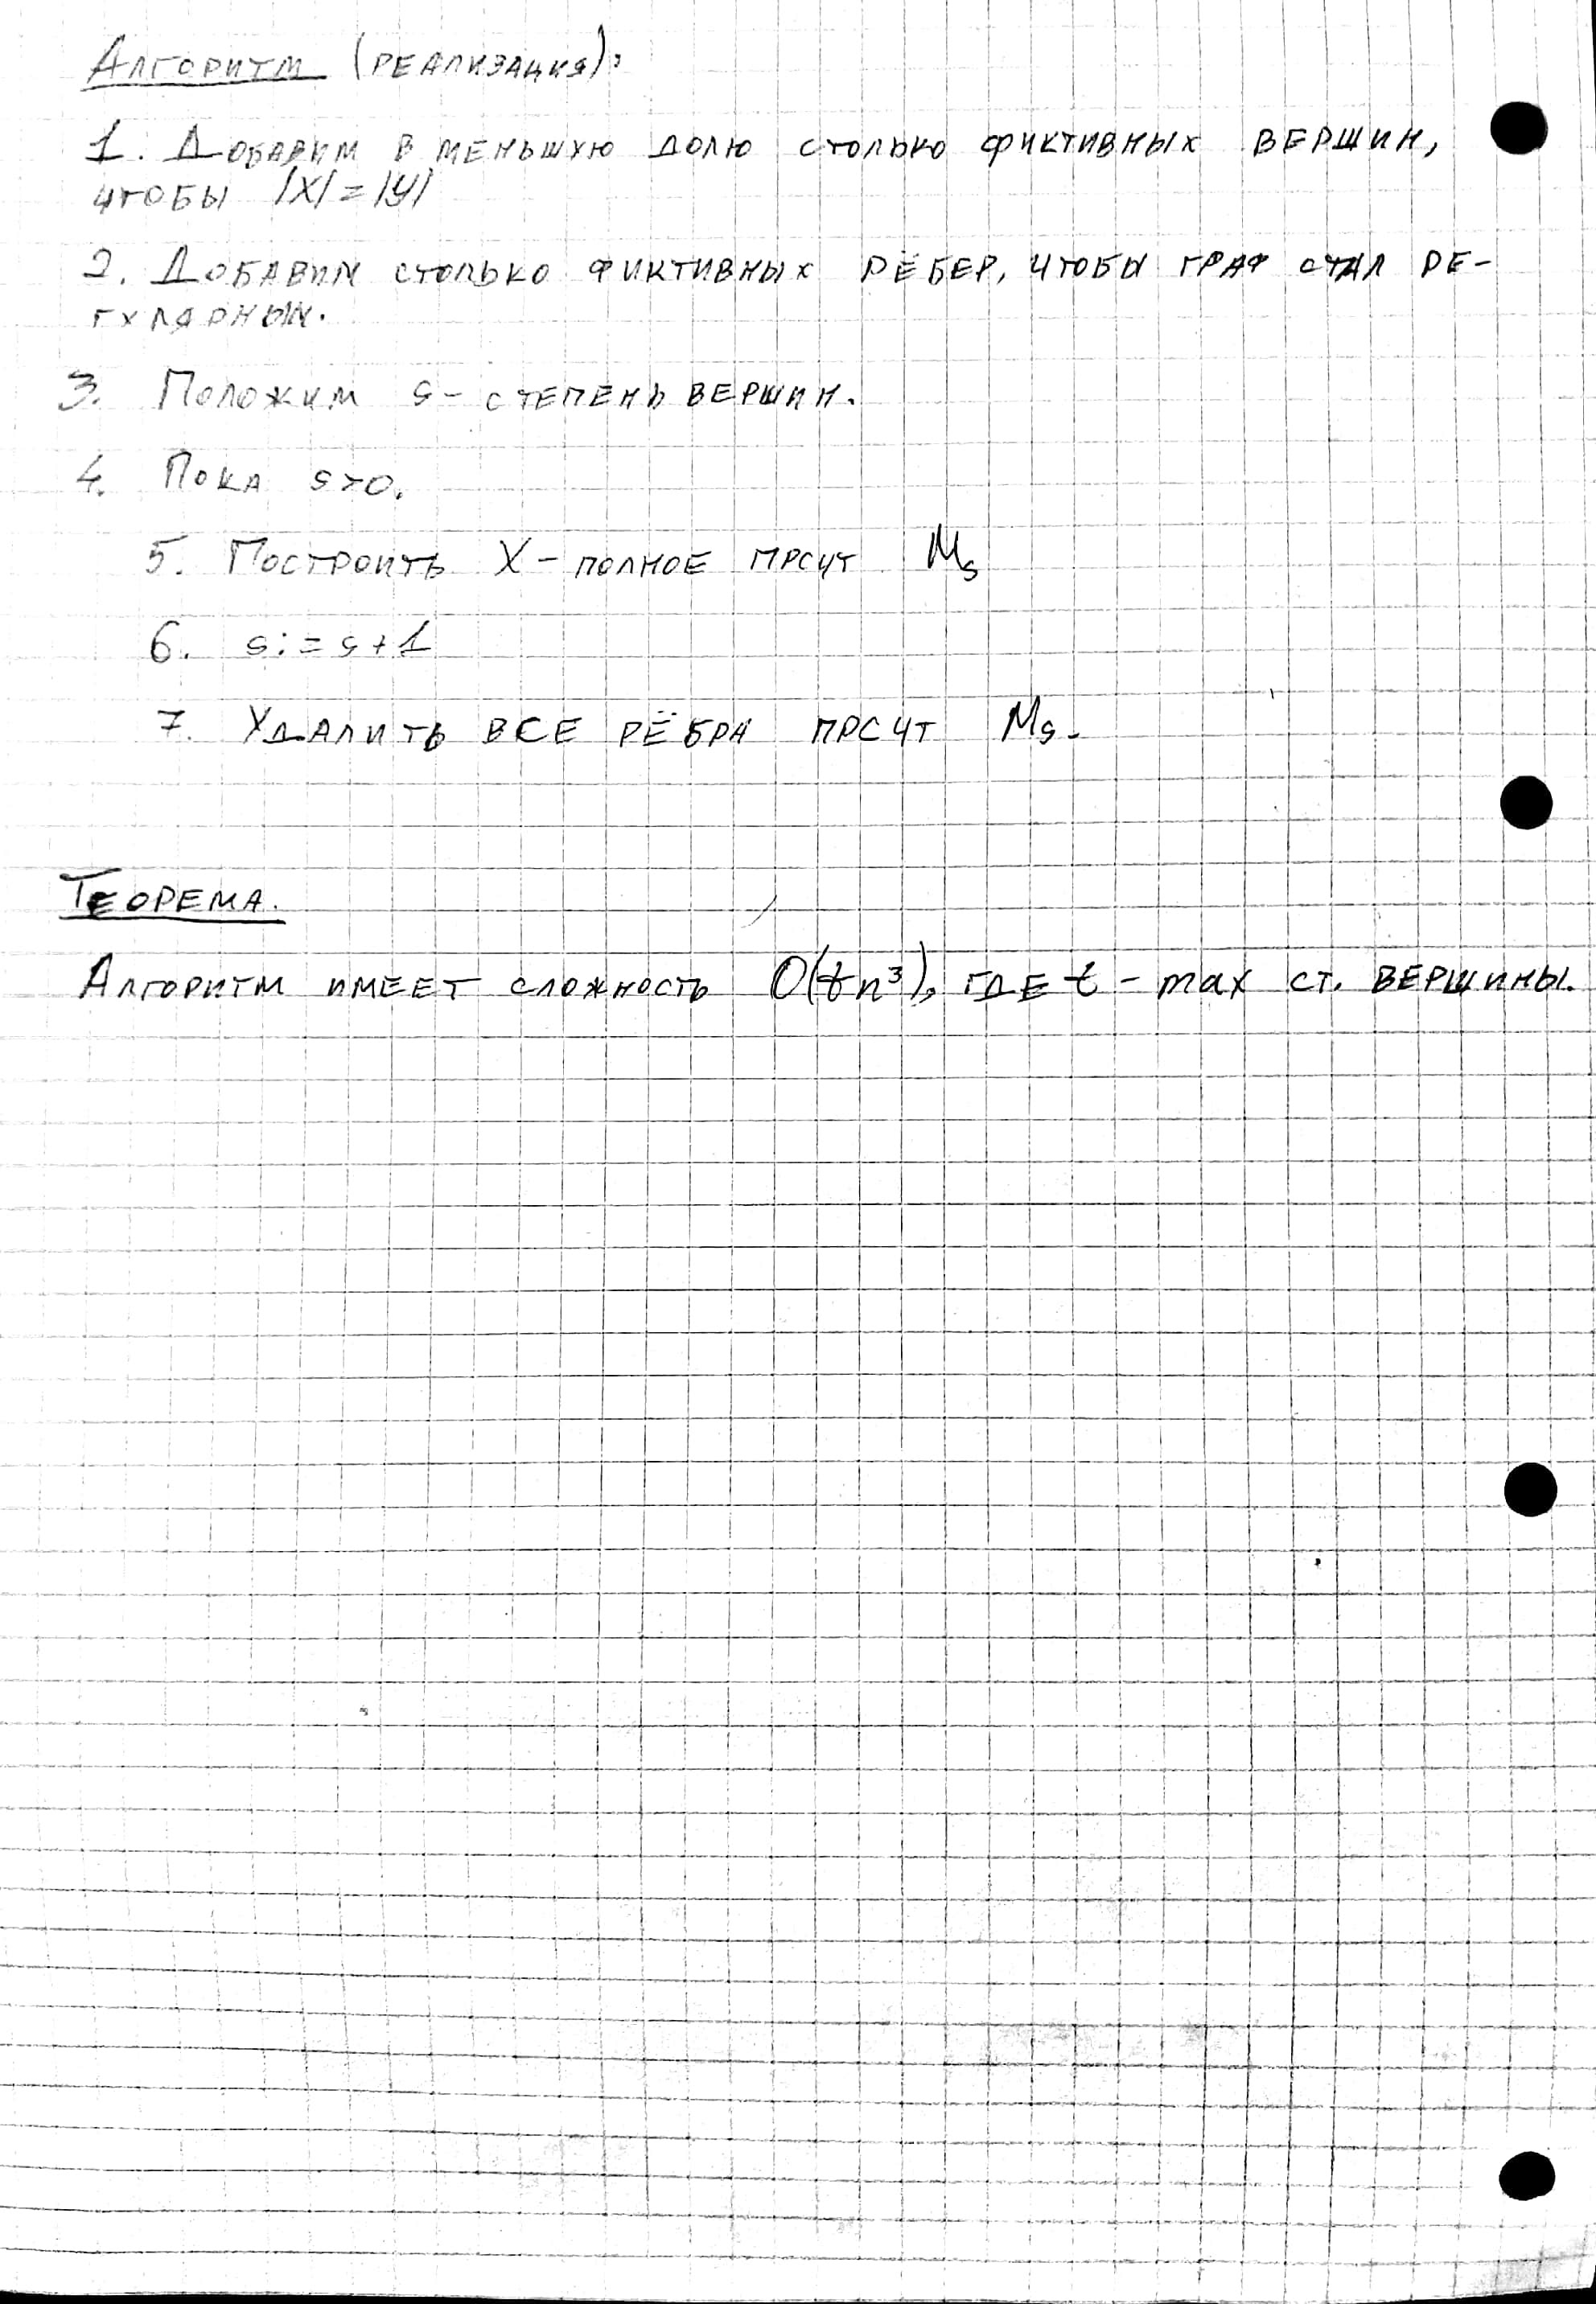 Алгоритм (реализация):
1. Добавим в меньшую долю столько фиктивных вершин,
чтобы |X| = |Y|
2. Добавим столько фиктивных рёбер, чтобы граф стал ре-
гулярным.
3. Положим s - степень вершин.
4. Пока s>0.
5. Построить X - полное прсчт Ms
6. s := s + 1
7. Удалить все рёбра прсчт Ms.
Теорема.
Алгоритм имеет сложность O(tn³), где t - max ст. вершины.